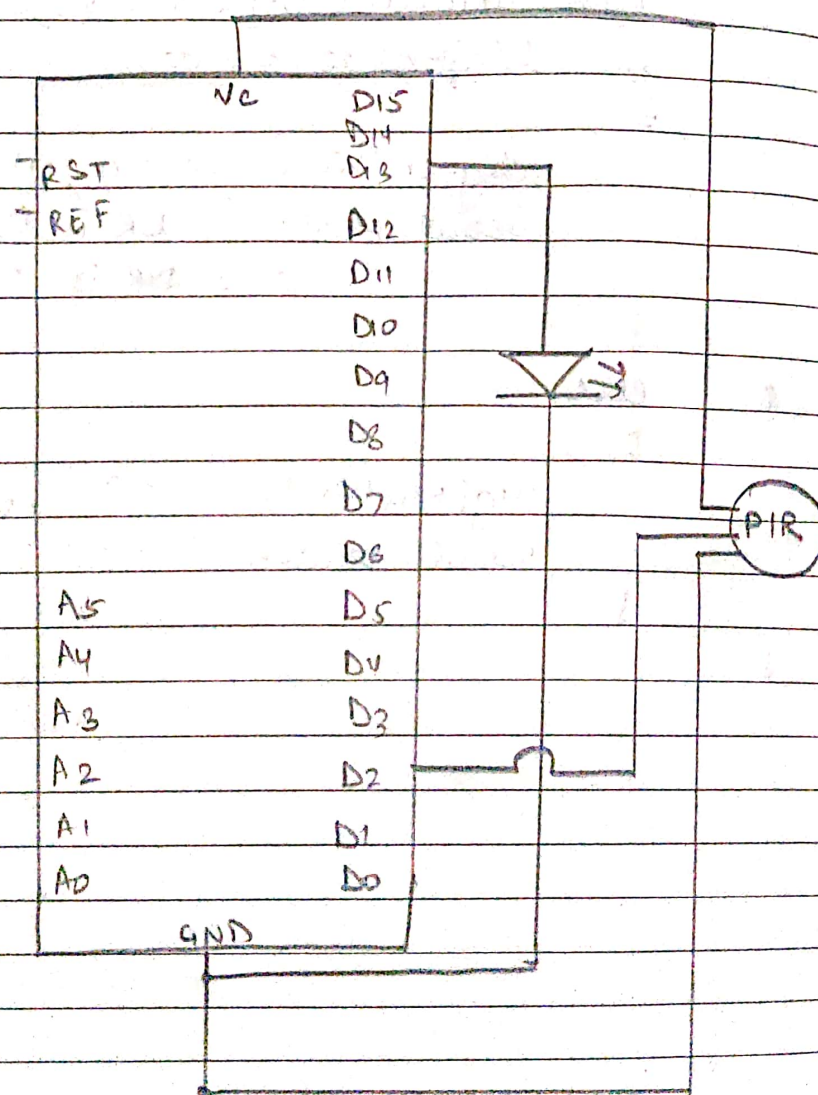 Vc D15
D14
RST D13
REF D12
D11
D10
D9
D8
D7
PIR
D6
A5 D5
A4 D4
A3 D3
A2 D2
A1 D1
A0 D0
GND